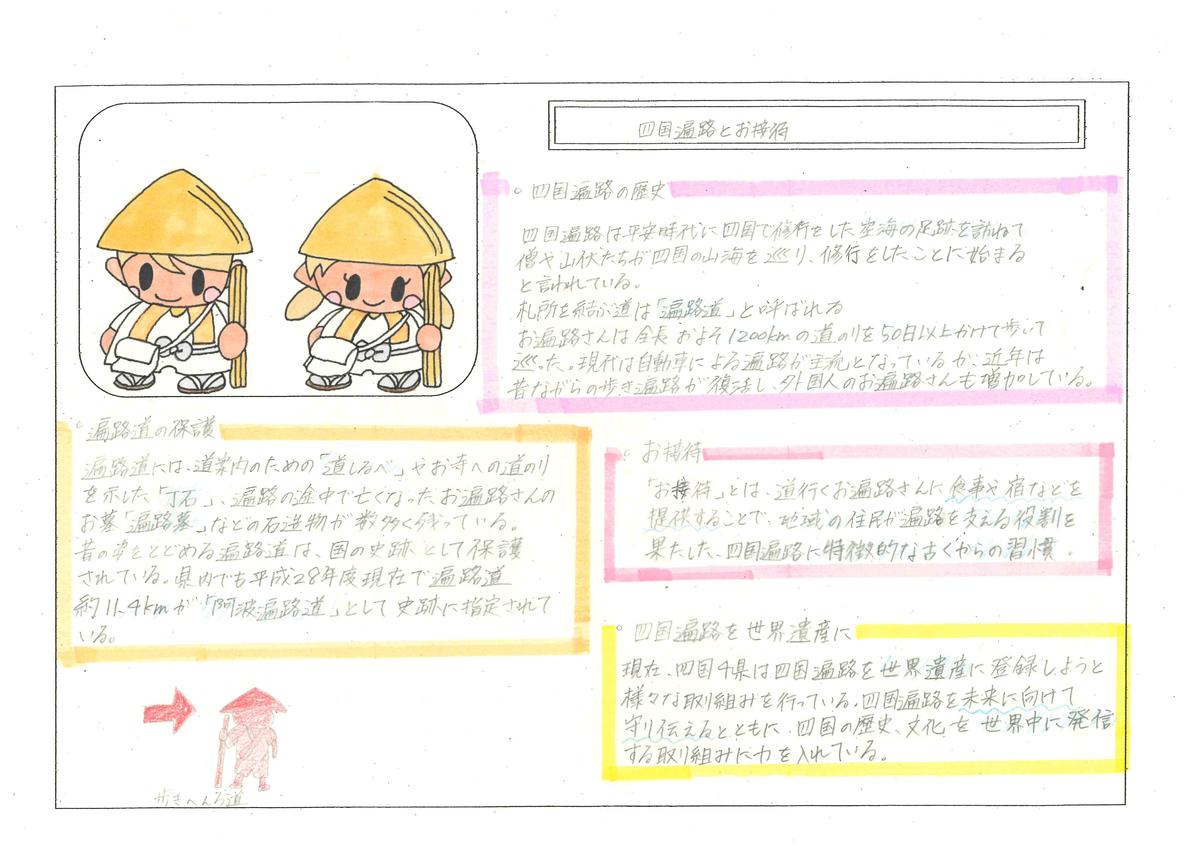 四国遍路とお接待
。四国遍路の歴史
四国遍路は平安時代に四国で修行をした空海の足跡を訪ねて
僧や山伏たちが四国の山海を巡り、修行をしたことに始まる
と言われている。
札所を結ぶ道は「遍路道」と呼ばれる
お遍路さんは全長およそ1200kmの道のりを50日以上かけて歩いて
巡った。現代は自動車による遍路が主流となっているが、近年は
昔ながらの歩き遍路が復活し、外国人のお遍路さんも増加している。
。遍路道の保護
遍路道には、道案内のための「道しるべ」やお寺への道のり
を示した「丁石」、遍路の途中で亡くなったお遍路さんの
お墓「遍路墓」などの石造物が数多く残っている。
昔の姿をとどめる遍路道は、国の史跡として保護
されている。県内でも平成28年度現在で遍路道
約11.4kmが「阿波遍路道」として史跡に指定されて
いる。
。お接待
「お接待」とは、道行くお遍路さんに食事や宿などを
提供することで、地域の住民が遍路を支える役割を
果たした、四国遍路に特徴的な古くからの習慣。
。四国遍路を世界遺産に
現在、四国4県は四国遍路を世界遺産に登録しようと
様々な取り組みを行っている。四国遍路を未来に向けて
守り伝えるとともに、四国の歴史、文化を世界中に発信
する取り組みに力を入れている。
歩きへんろ道